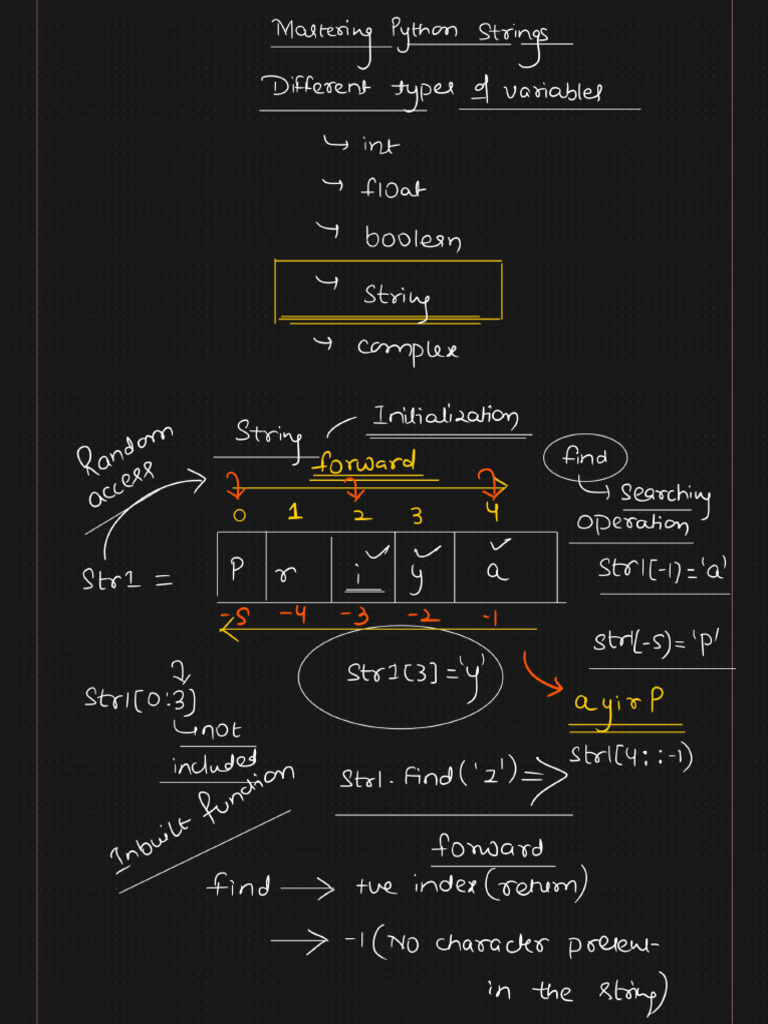 Mastering Python Strings
Different types of variables
↳ int
↳ float
↳ boolean
↳ String
↳ complex
String
Initialization
Random
access
forward
0 1 2 3 4
Str1 =
P r i y a
-5 -4 -3 -2 -1
find
↳ searching
operation
Str1[-1] = 'a'
str1[-5] = 'P'
Str1[3] = 'y'
Str1[0:3]
↳ not
included
a y i r P
Str1[4::-1)
Inbuilt function
Str1.find('z') =>
forward
find → +ve index (return)
→ -1 (No character present
in the string)